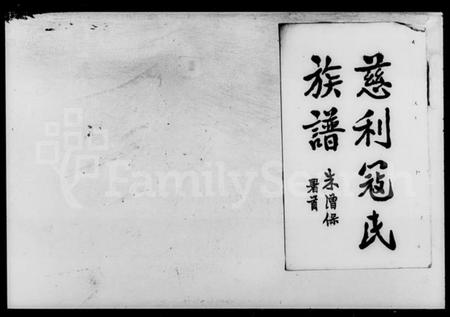 慈利寇氏
族譜
朱澮保
署首
FamilySearch